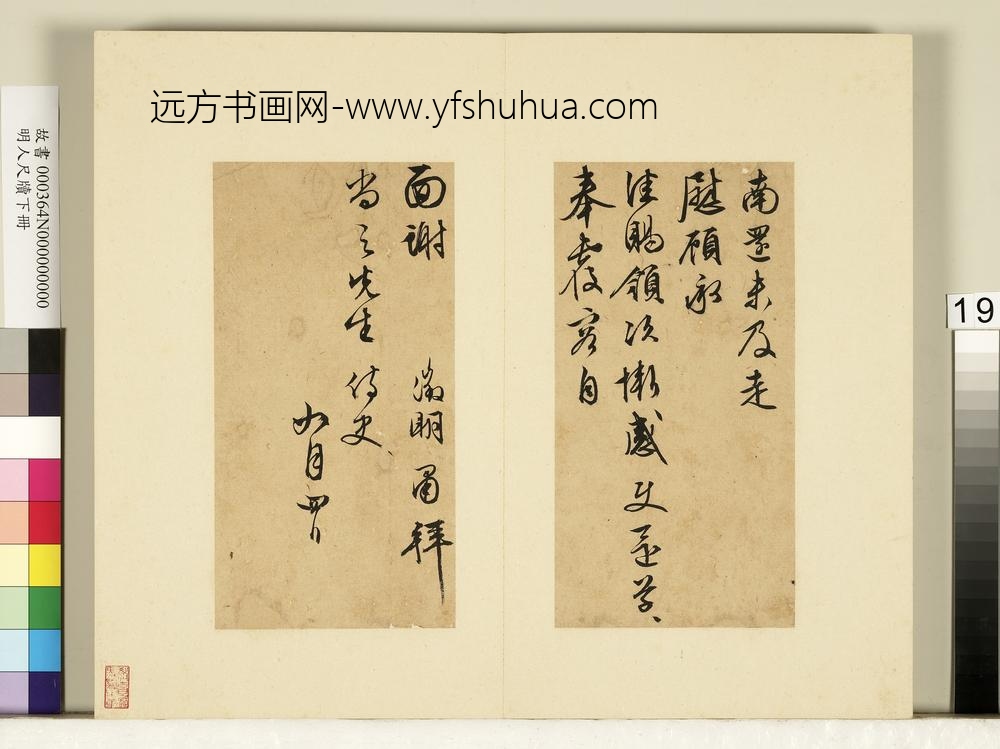 远方书画网-www.yfshuhua.com
故書 000364N000000000
明人尺牘下冊
19
南還未及走
慰顧承
佳賜領次慚感使還草草
奉復容自
面謝 徵明再拜
尚之先生侍史
九月四日